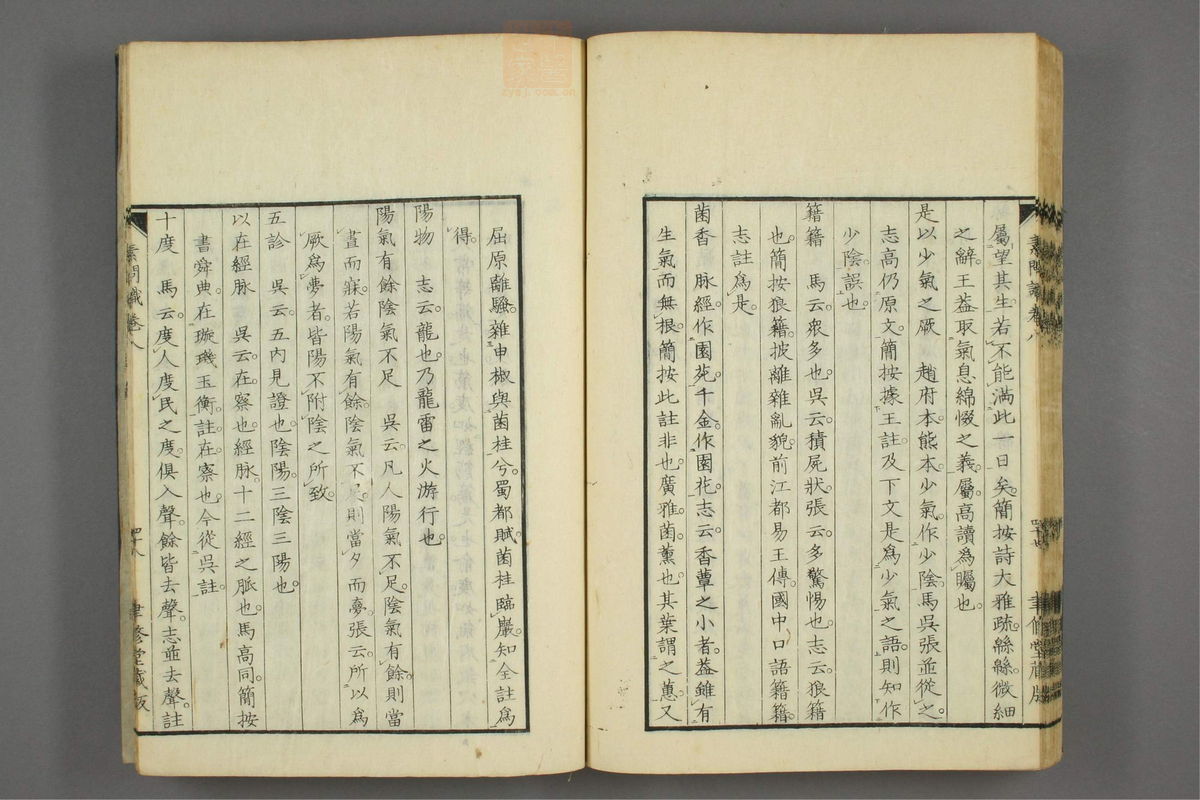 屬望其生若不能滿此一日矣簡按詩大雅疏綿綿微細
之辭王蓋取氣息綿惙之義屬高讀爲矚也
是以少氣之厥　趙府本熊本少氣作少陰馬吳張並從之
志高仍原文簡按據王註及下文是爲少氣之語則知作
少陰誤也
籍籍　馬云衆多也吳云積屍狀張云多驚惕也志云狼籍
也簡按狼籍披離雜亂貌前江都易王傳國中口語籍籍
志註爲是
菌香　脉經作園苑千金作園花志云香蕈之小者蓋雖有
生氣而無根簡按此註非也廣雅菌薰也其葉謂之蕙又
屈原離騷雜申椒與菌桂兮蜀都賦菌桂臨巖知全註爲
得
陽物　志云龍也乃龍雷之火游行也
陽氣有餘陰氣不足　吳云凡人陽氣不足陰氣有餘則當
晝而寐若陽氣有餘陰氣不足則當夕而夢張云所以爲
厥爲夢者皆陽不附陰之所致
五診　吳云五內見證也陰陽三陰三陽也
以在經脉　吳云在察也經脉十二經之脈也馬高同簡按
書舜典在璇璣玉衡註在察也今從吳註
十度　馬云度人度民之度俱入聲餘皆去聲志並去聲註
素問識卷八
四十八
聿修堂藏版